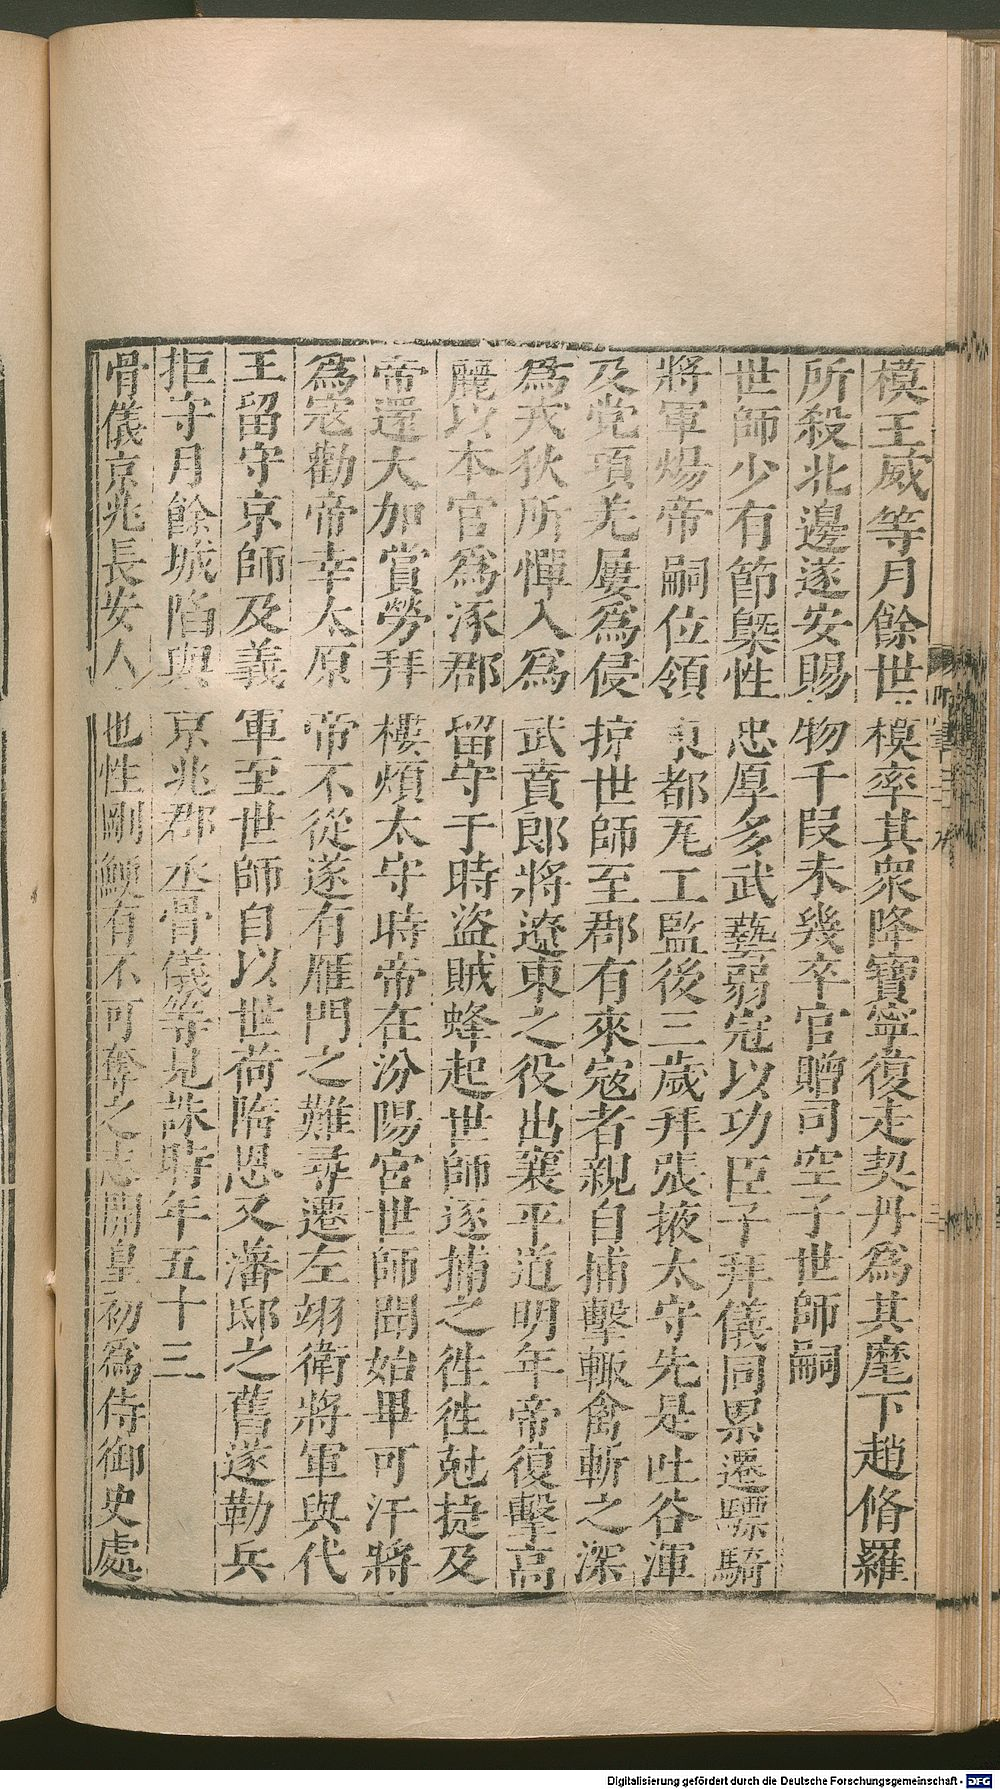 模王威等月餘世模率其衆降寶寧復走契丹爲其麾下趙脩羅
所殺北邊遂安賜物千叚未幾卒官贈司空子世師嗣
世師少有節槩性忠厚多武藝弱冠以功臣子拜儀同累遷驃騎
將軍煬帝嗣位領東都瓦工監後三歲拜張掖太守先是吐谷渾
及党項羌屢爲侵掠世師至郡有來寇者親自捕擊輙禽斬之深
爲戎狄所憚入爲武賁郎將遼東之役出襄平道明年帝復擊高
麗以本官爲涿郡留守于時盜賊蜂起世師逐捕之徃徃尅捷及
帝還大加賞勞拜樓煩太守時帝在汾陽宮世師聞始畢可汗將
爲寇勸帝幸太原帝不從遂有雁門之難尋遷左翊衛將軍與代
王留守京師及義軍至世師自以世荷隋恩又藩邸之舊遂勒兵
拒守月餘城陷與京兆郡丞骨儀等見誅時年五十三
骨儀京兆長安人也性剛鯁有不可奪之志開皇初爲侍御史處
Digitalisierung gefördert durch die Deutsche Forschungsgemeinschaft - DFG